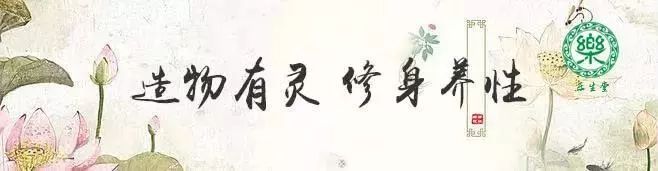 造物有灵 修身养性
樂
益生堂